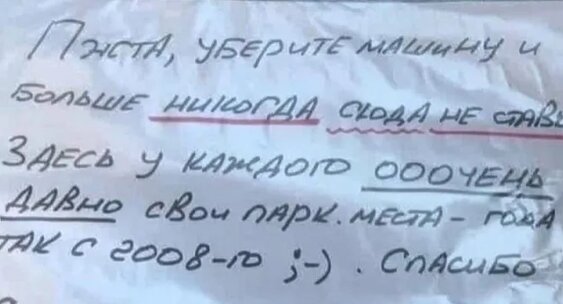 Пжста, уберите машину и
больше никогда сюда не ставь
Здесь у каждого ооочень
давно свои парк. места - года
так с 2008-го ;-) . Спасибо